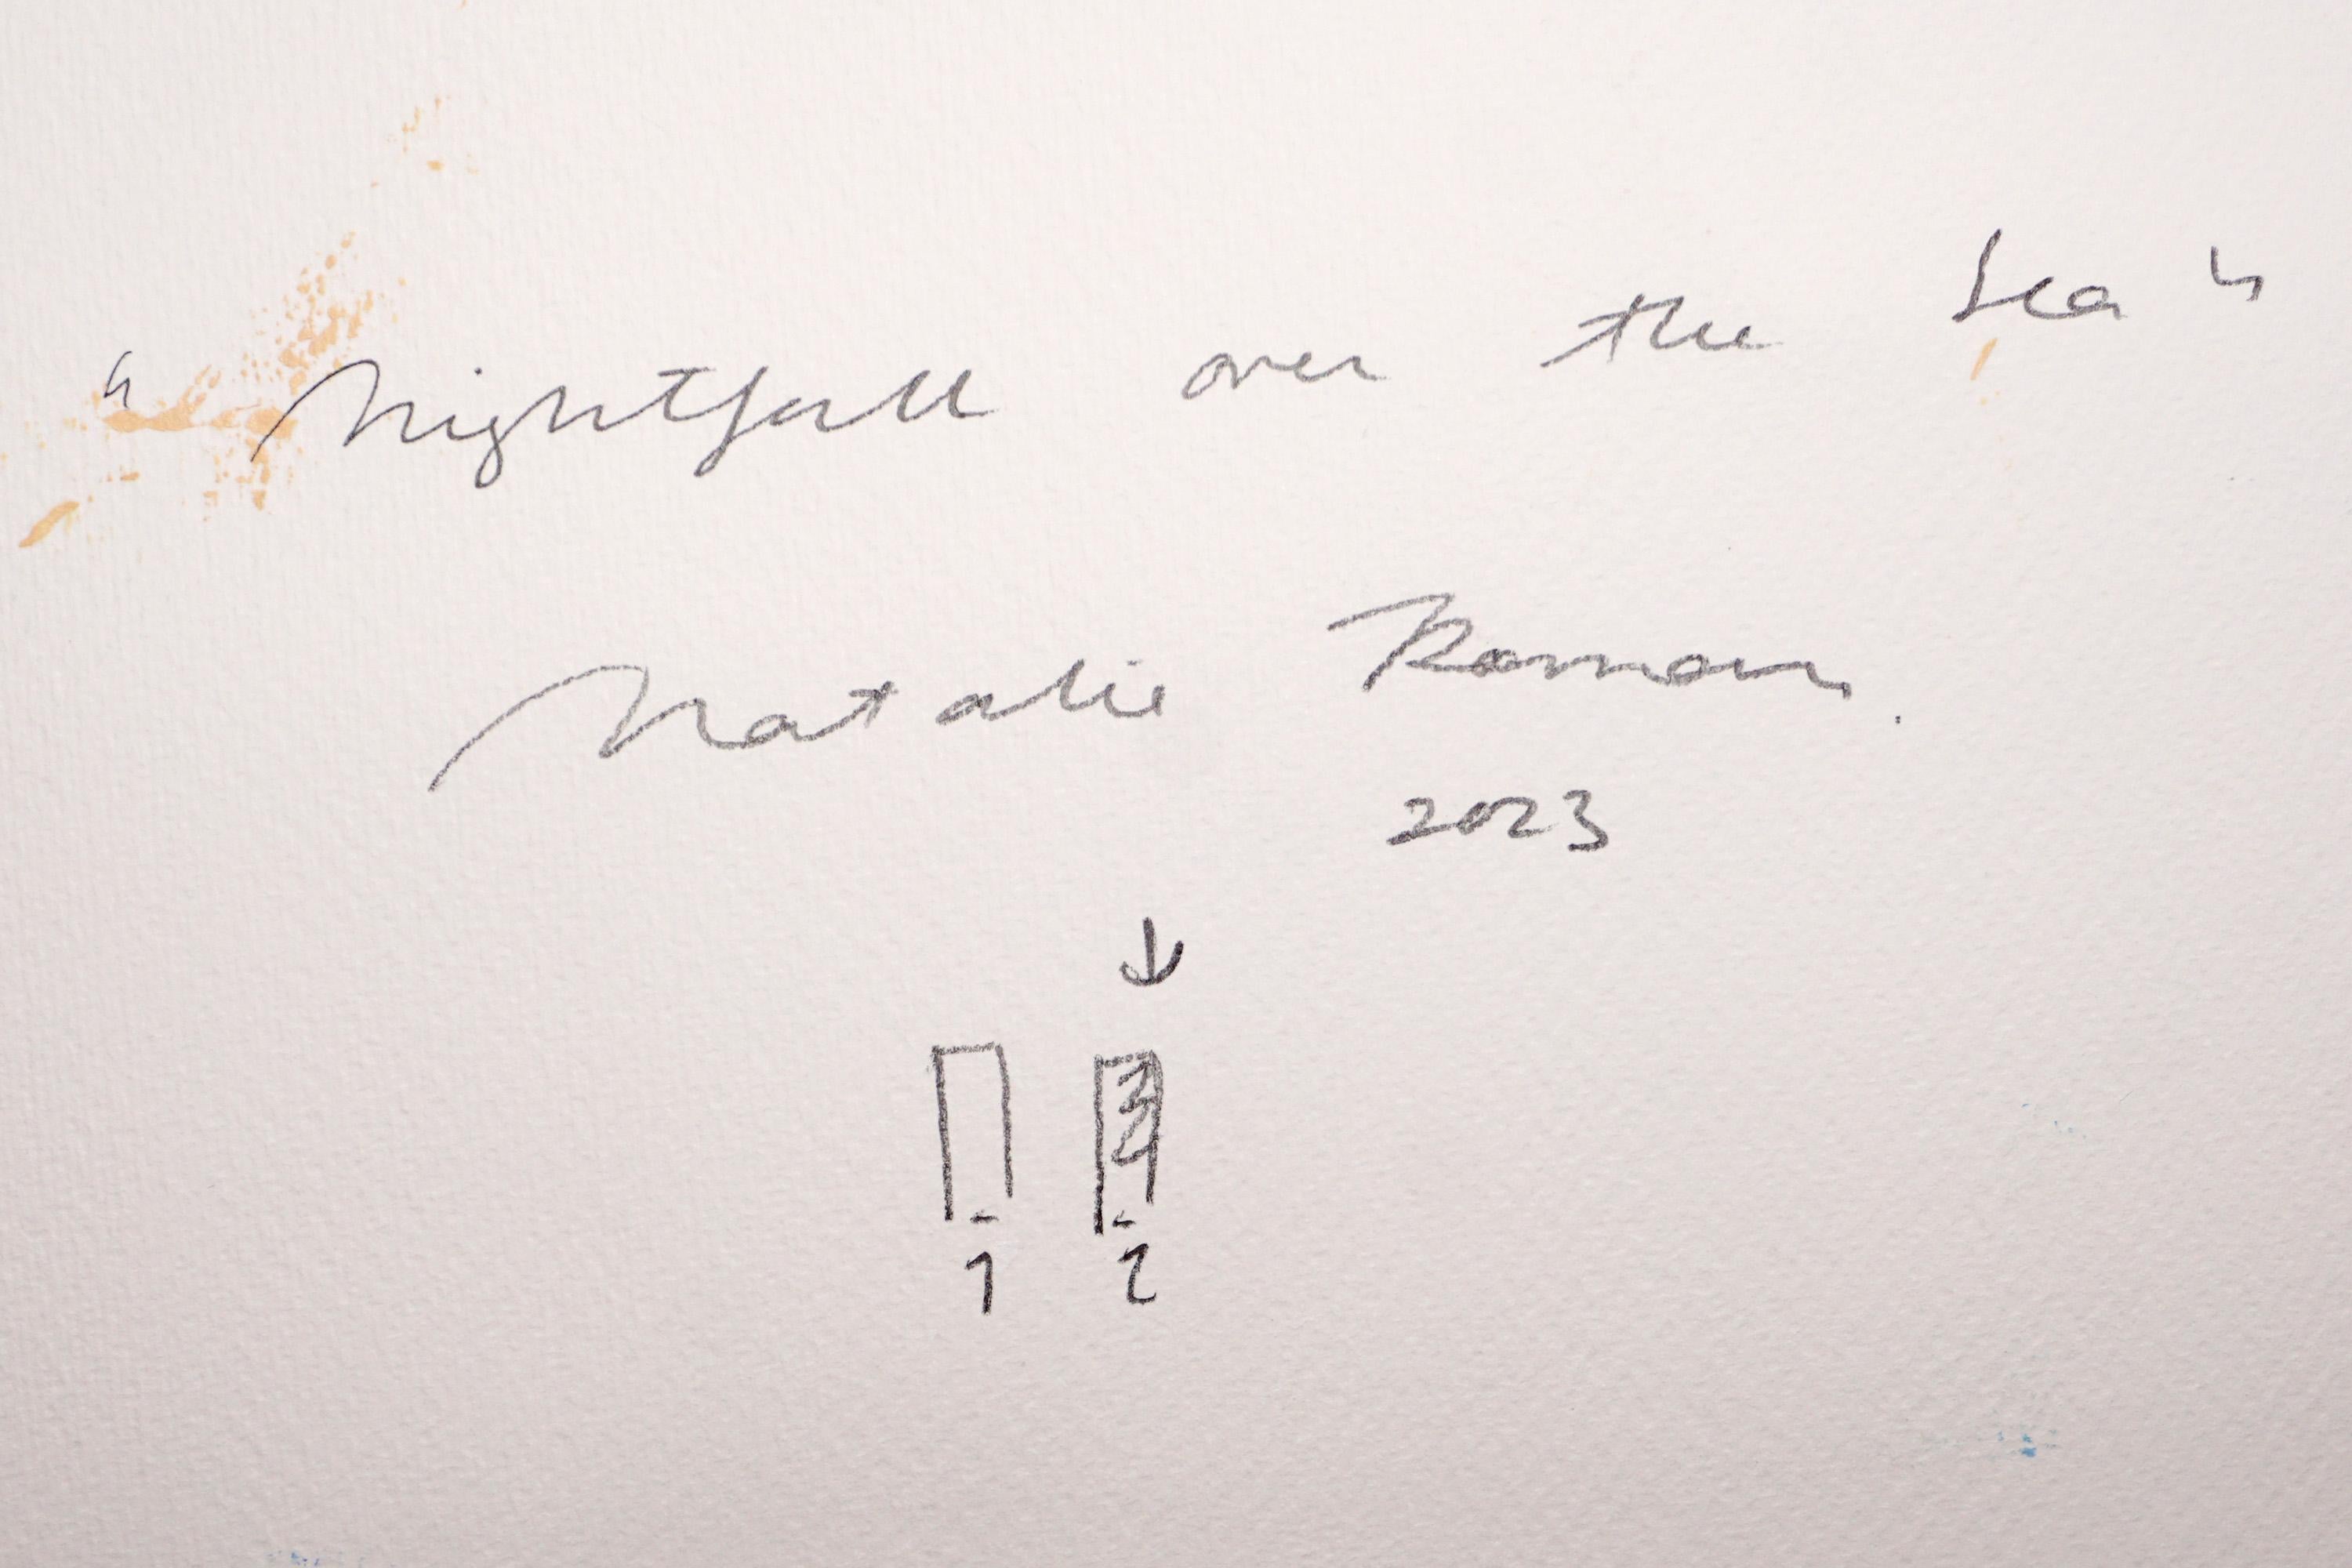 "Nightfall over the Sea"
Natalie Roman.
2023
1 2